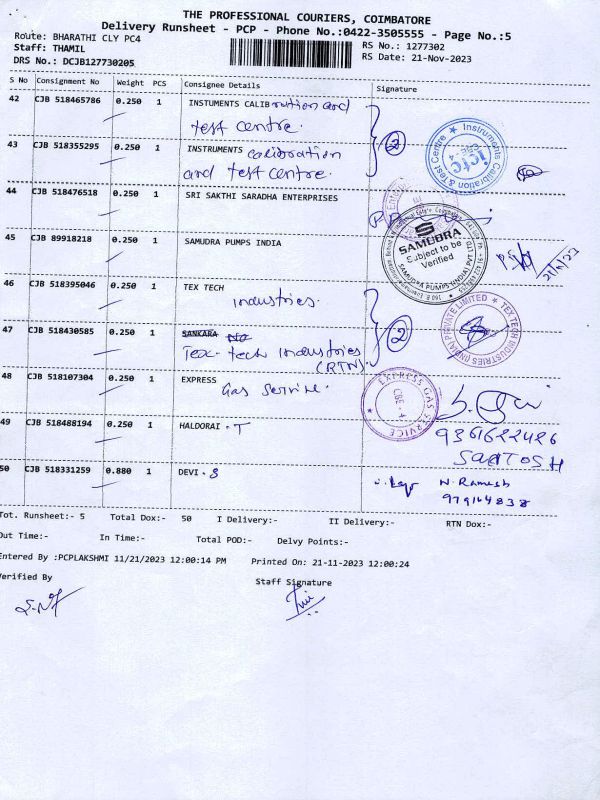 THE PROFESSIONAL COURIERS, COIMBATORE
Delivery Runsheet - PCP - Phone No.:0422-3505555 - Page No.:5
Route: BHARATHI CLY PC4
RS No.: 1277302
Staff: THAMIL
RS Date: 21-Nov-2023
DRS No.: DCJB127730205
S No Consignment No Weight PCS Consignee Details Signature
42 CJB 518465786 0.250 1 INSTUMENTS CALIB ration and
test centre.
43 CJB 518355295 0.250 1 INSTRUMENTS calibration
and test centre.
2
Instruments Calibration & Test Centre
ictc
CBE-4
44 CJB 518476518 0.250 1 SRI SAKTHI SARADHA ENTERPRISES
45 CJB 89918218 0.250 1 SAMUDRA PUMPS INDIA
S
SAMUDRA
Subject to be
Verified
SAMUDRA PUMPS (INDIA) PVT LTD
21/11/23
46 CJB 518395046 0.250 1 TEX TECH
industries.
47 CJB 518430585 0.250 1 SANKARA
Tex-tech industries
(RTN)
2
TEX TECH INDUSTRIES (INDIA) PRIVATE LIMITED
48 CJB 518107304 0.250 1 EXPRESS
Gas Service.
EXPRESS GAS SERVICE
CBE-4
49 CJB 518488194 0.250 1 HALDORAI . T
9361622426
SANTOSH
50 CJB 518331259 0.880 1 DEVI . S
N. Ramesh
979164838
Tot. Runsheet:- 5 Total Dox:- 50 I Delivery:- II Delivery:- RTN Dox:-
Out Time:- In Time:- Total POD:- Delvy Points:-
Entered By :PCPLAKSHMI 11/21/2023 12:00:14 PM Printed On: 21-11-2023 12:00:24
Verified By
Staff Signature